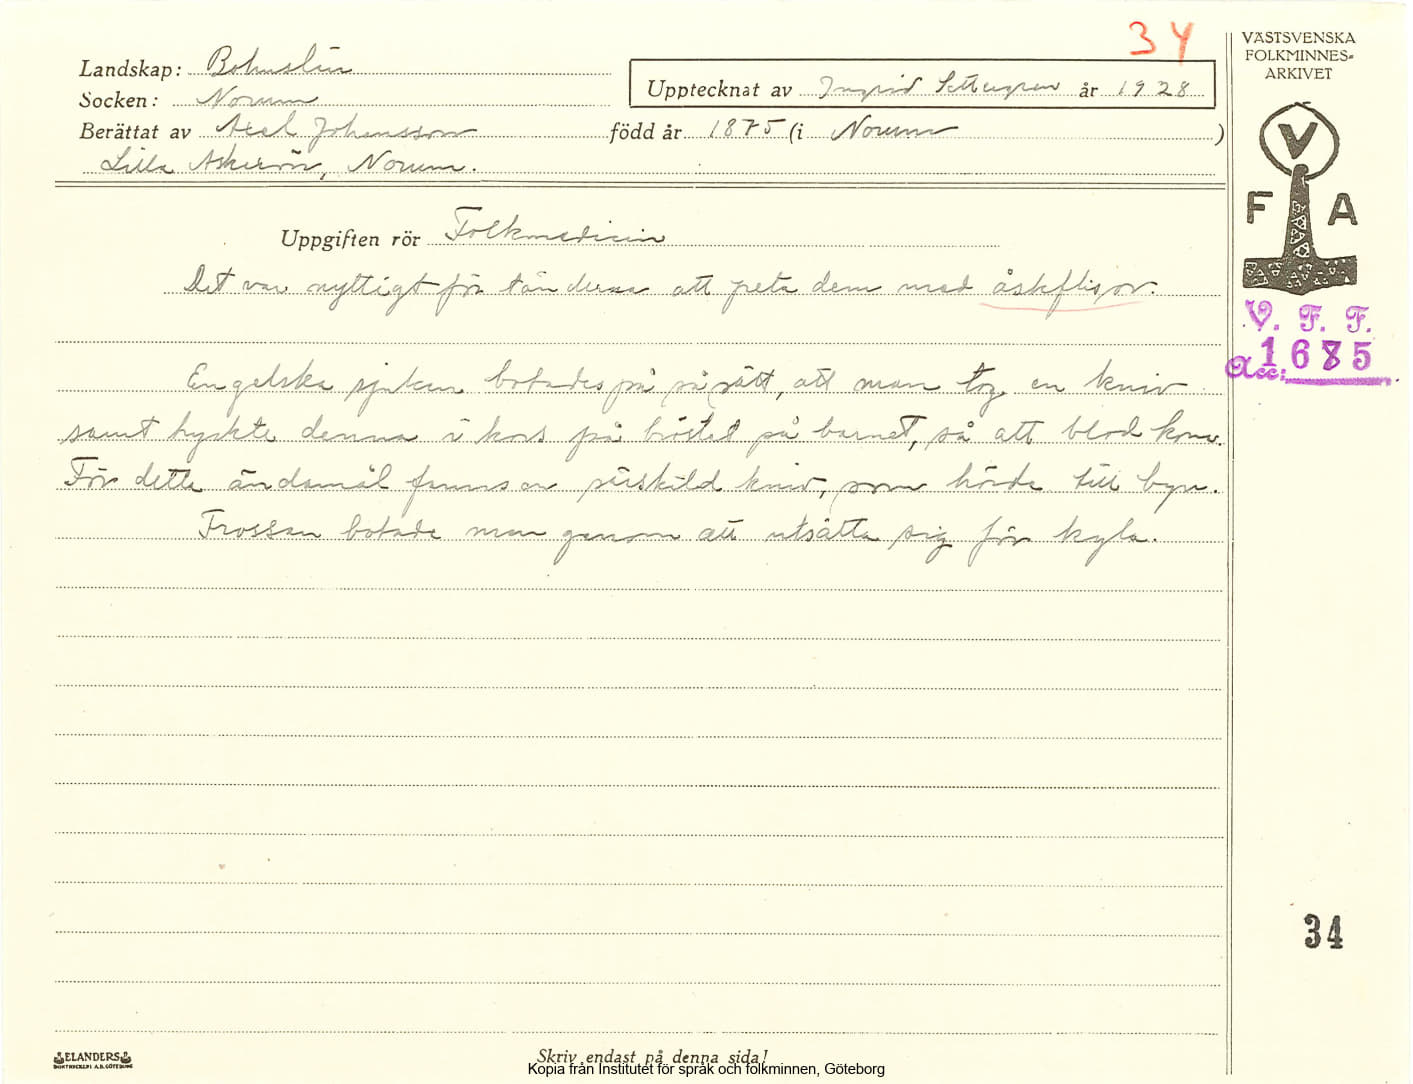 34
VÄSTSVENSKA
FOLKMINNES-
ARKIVET
Landskap: Bohuslän
Socken: Norum
Upptecknat av Ingrid Settergren år 1928
Berättat av Axel Johansson född år 1875 (i Norum )
Lilla Askerön, Norum.
V
F A
Uppgiften rör Folkmedicin
Det var nyttigt för tänderna att peta dem med åskflisor.
V. F. F.
Acc: 1685
Engelska sjukan botades på så sätt, att man tog en kniv
samt tryckte denna i kors på bröstet på barnet, så att blod kom.
För detta ändamål fanns en särskild kniv, som hörde till byn.
Frossan botade man genom att utsätta sig för kyla.
34
ELANDERS
BOKTRYCKERI A.B. GÖTEBORG
Skriv endast på denna sida!
Kopia från Institutet för språk och folkminnen, Göteborg